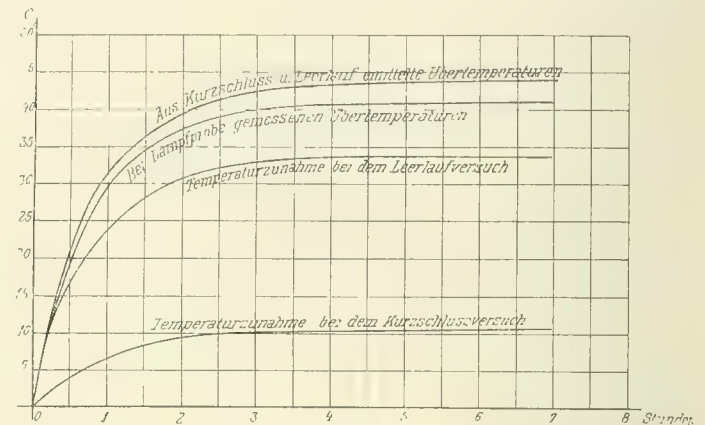 C
50
5
40
35
30
25
20
15
10
5
0 1 2 3 4 5 6 7 8 Stunden
Aus Kurzschluss u. Leerlauf emittelte Übertemperaturen
Bei Lampfprobe gemessenen Übertemperaturen
Temperaturzunahme bei dem Leerlaufversuch
Temperaturzunahme bei dem Kurzschlussversuch